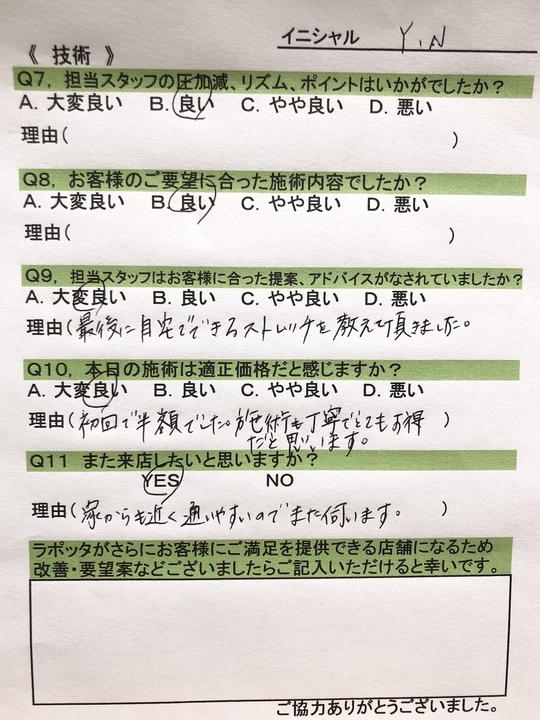 イニシャル Y.N
《 技術 》
Q7, 担当スタッフの圧加減、リズム、ポイントはいかがでしたか？
A. 大変良い B. 良い C. やや良い D. 悪い
理由( )
Q8, お客様のご要望に合った施術内容でしたか？
A. 大変良い B. 良い C. やや良い D. 悪い
理由( )
Q9, 担当スタッフはお客様に合った提案、アドバイスがなされていましたか?
A. 大変良い B. 良い C. やや良い D. 悪い
理由(最後に自宅でできるストレッチを教えて頂きました。
Q10, 本日の施術は適正価格だと感じますか？
A. 大変良い B. 良い C. やや良い D. 悪い
理由(初回で半額でした。施術も丁寧でとてもお得 )
だと思います。
Q11 また来店したいと思いますか？
YES NO
理由(家からも近く通いやすいのでまた伺います。 )
ラポッタがさらにお客様にご満足を提供できる店舗になるため
改善・要望案などございましたらご記入いただけると幸いです。
ご協力ありがとうございました。